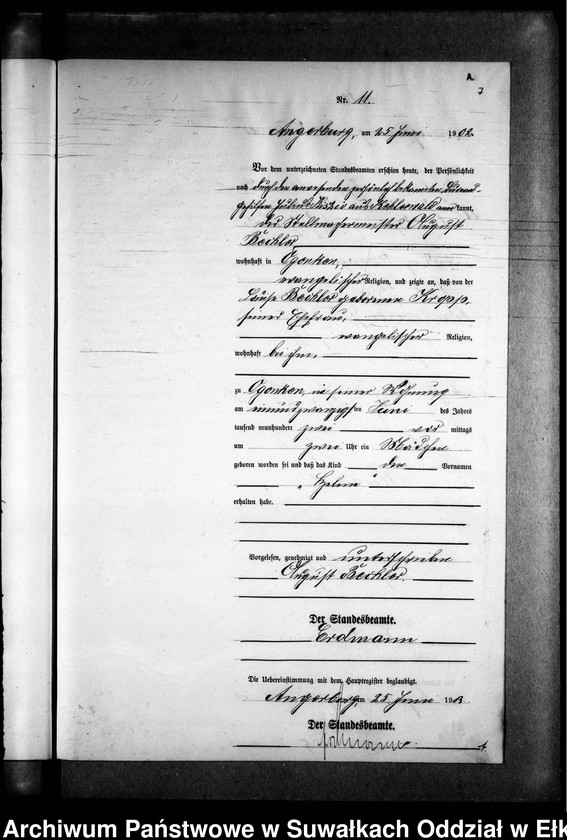 A.
7
Nr. 11.
Angerburg, am 25 Juni 1902
Vor dem unterzeichneten Standesbeamten erschien heute, der Persönlichkeit
nach durch den anwesenden persönlich bekannten
gehilfen aus kannt,
der Stellmachermeister August
Bechler
wohnhaft in Ogonken,
evangelischer Religion, und zeigte an, daß von der
Luise Bechler geborenen Kropp,
seiner Ehefrau,
evangelischer Religion,
wohnhaft bei ihm,
zu Ogonken, in seiner Wohnung
am einundzwanzigsten Juni des Jahres
tausend neunhundert zwei vor mittags
um zwei Uhr ein Mädchen
geboren worden sei und daß das Kind den Vornamen
„Helene“
erhalten habe.
Vorgelesen, genehmigt und unterschrieben
August Bechler
Der Standesbeamte.
Erdmann
Die Uebereinstimmung mit dem Hauptregister beglaubigt.
Angerburg, am 25 Juni 190
Der Standesbeamte.
Archiwum Państwowe w Suwałkach Oddział w Ełk